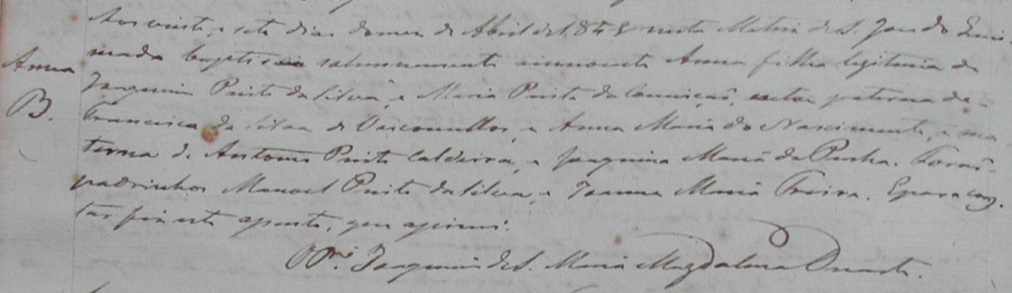 Aos vinte, e sete dias do mes de Abril de 1845 nesta Matris de S. Joao do
Anna
B.
baptisei solemnemente innocente Anna filha legitima de
Joaquim Pinto da Silva, e Maria Pinta da Conceiçaõ, netta paterna de
Francisco da Silva de Vasconcellos, e Anna Maria do Nascimento, e ma
terna de Antonio Pinto Caldeira, e Joaquina Maria da Penha. Foraõ
padrinhos Manoel Pinto da Silva, e Joanna Maria. E para cons
tar fiz este assento, que assinei.
O Pe. Joaquim de S. Maria Magdalena Duarte.